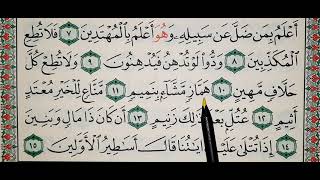 أَعْلَمُ بِمَن ضَلَّ عَن سَبِيلِهِۦ وَهُوَ أَعْلَمُ بِٱلْمُهْتَدِينَ ٧ فَلَا تُطِعِ
ٱلْمُكَذِّبِينَ ٨ وَدُّوا۟ لَوْ تُدْهِنُ فَيُدْهِنُونَ ٩ وَلَا تُطِعْ كُلَّ
حَلَّافٍ مَّهِينٍ ١٠ هَمَّازٍ مَّشَّآءٍۭ بِنَمِيمٍ ١١ مَّنَّاعٍ لِّلْخَيْرِ مُعْتَدٍ
أَثِيمٍ ١٢ عُتُلٍّۭ بَعْدَ ذَٰلِكَ زَنِيمٍ ١٣ أَن كَانَ ذَا مَالٍ وَبَنِينَ
١٤ إِذَا تُتْلَىٰ عَلَيْهِ ءَايَٰتُنَا قَالَ أَسَٰطِيرُ ٱلْأَوَّلِينَ ١٥